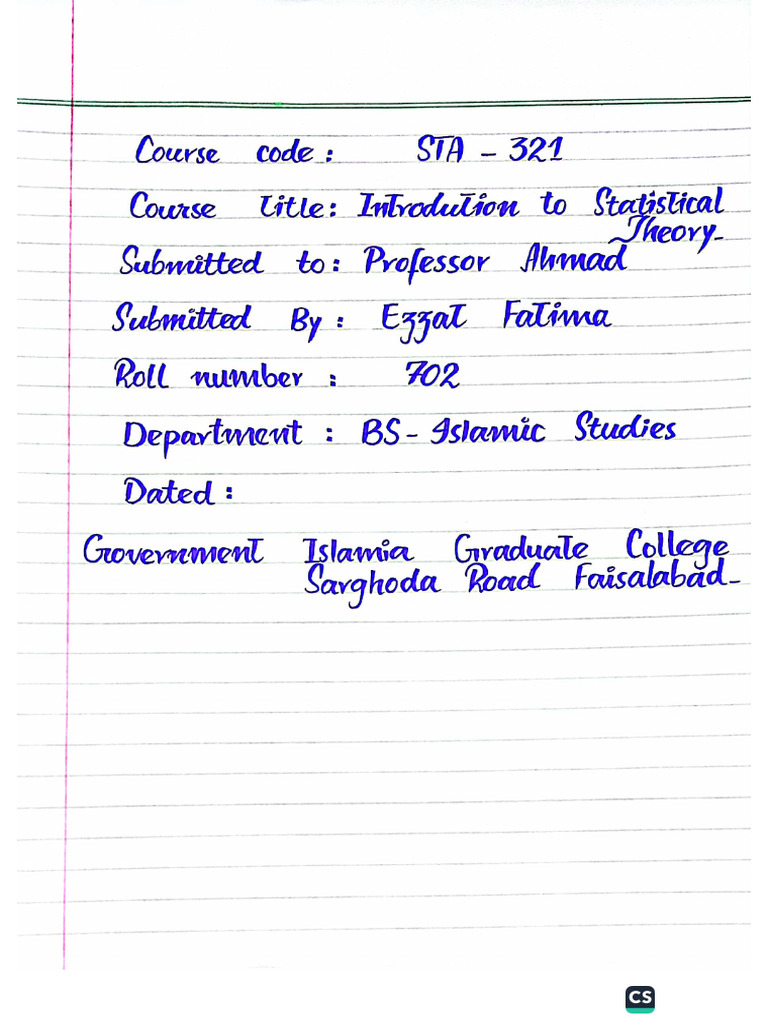 Course code: STA - 321
Course title: Introdution to Statistical
Theory-
Submitted to: Professor Ahmad
Submitted By: Ezzat Fatima
Roll number: 702
Department: BS- Islamic Studies
Dated:
Government Islamia Graduate College
Sarghoda Road Faisalabad-
CS